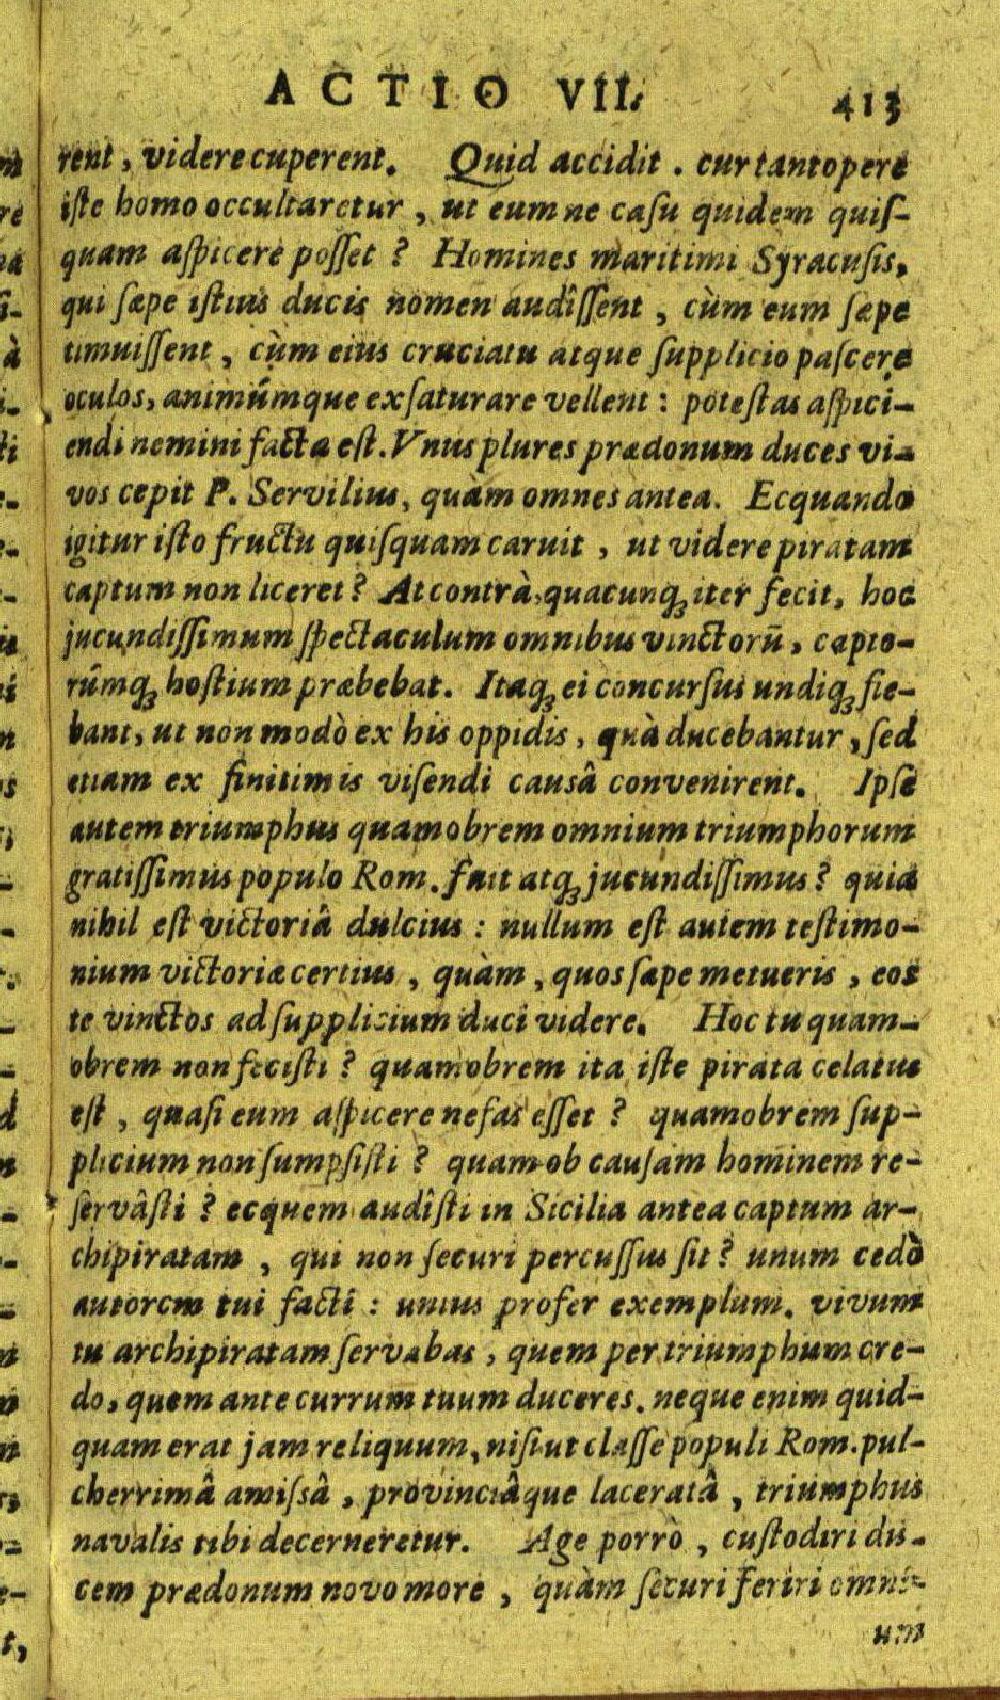 ACTIO VII. 413
rent, videre cuperent. Quid accidit. cur tantopere
iſte homo occultaretur, ut eum ne caſu quidem quiſ-
quam aſpicere poſſet? Homines maritimi Syracuſis,
qui ſæpe iſtius ducis nomen audîſſent, cùm eum ſæpe
timuiſſent, cùm eius cruciatu atque ſupplicio paſcere
oculos, animúmque exſaturare vellent: poteſtas aſpici-
endi nemini facta eſt. Vnus plures prædonum duces vi-
vos cepit P. Servilius, quàm omnes antea. Ecquando
igitur iſto fructu quiſquam caruit, ut videre piratam
captum non liceret? At contrà, quacunq; iter fecit, hoc
jucundiſſimum ſpectaculum omnibus vinctorū, capto-
rúmq; hoſtium præbebat. Itaq; ei concurſus undiq; fie-
bant, ut non modò ex his oppidis, quà ducebantur, ſed
etiam ex finitimis viſendi causâ convenirent. Ipſe
autem triumphus quamobrem omnium triumphorum
gratiſſimus populo Rom. fuit atq; jucundiſſimus? quia
nihil eſt victoriâ dulcius: nullum eſt autem teſtimo-
nium victoriæ certius, quàm, quos ſæpe metueris, eos
te vinctos ad ſupplicium duci videre. Hoc tu quam-
obrem non feciſti? quamobrem ita iſte pirata celatus
eſt, quaſi eum aſpicere nefas eſſet? quamobrem ſup-
plicium non ſumpſiſti? quam ob cauſam hominem re-
ſervâſti? ecquem audîſti in Sicilia antea captum ar-
chipiratam, qui non ſecuri percuſſus ſit? unum cedò
autorem tui facti: unius profer exemplum. vivum
tu archipiratam ſervabas, quem per triumphum cre-
do, quem ante currum tuum duceres. neque enim quid-
quam erat jam reliquum, niſi ut claſſe populi Rom. pul-
cherrimâ amiſsâ, provinciâque laceratâ, triumphus
navalis tibi decerneretur. Age porrò, cuſtodiri du-
cem prædonum novo more, quàm ſecuri feriri omni-
um